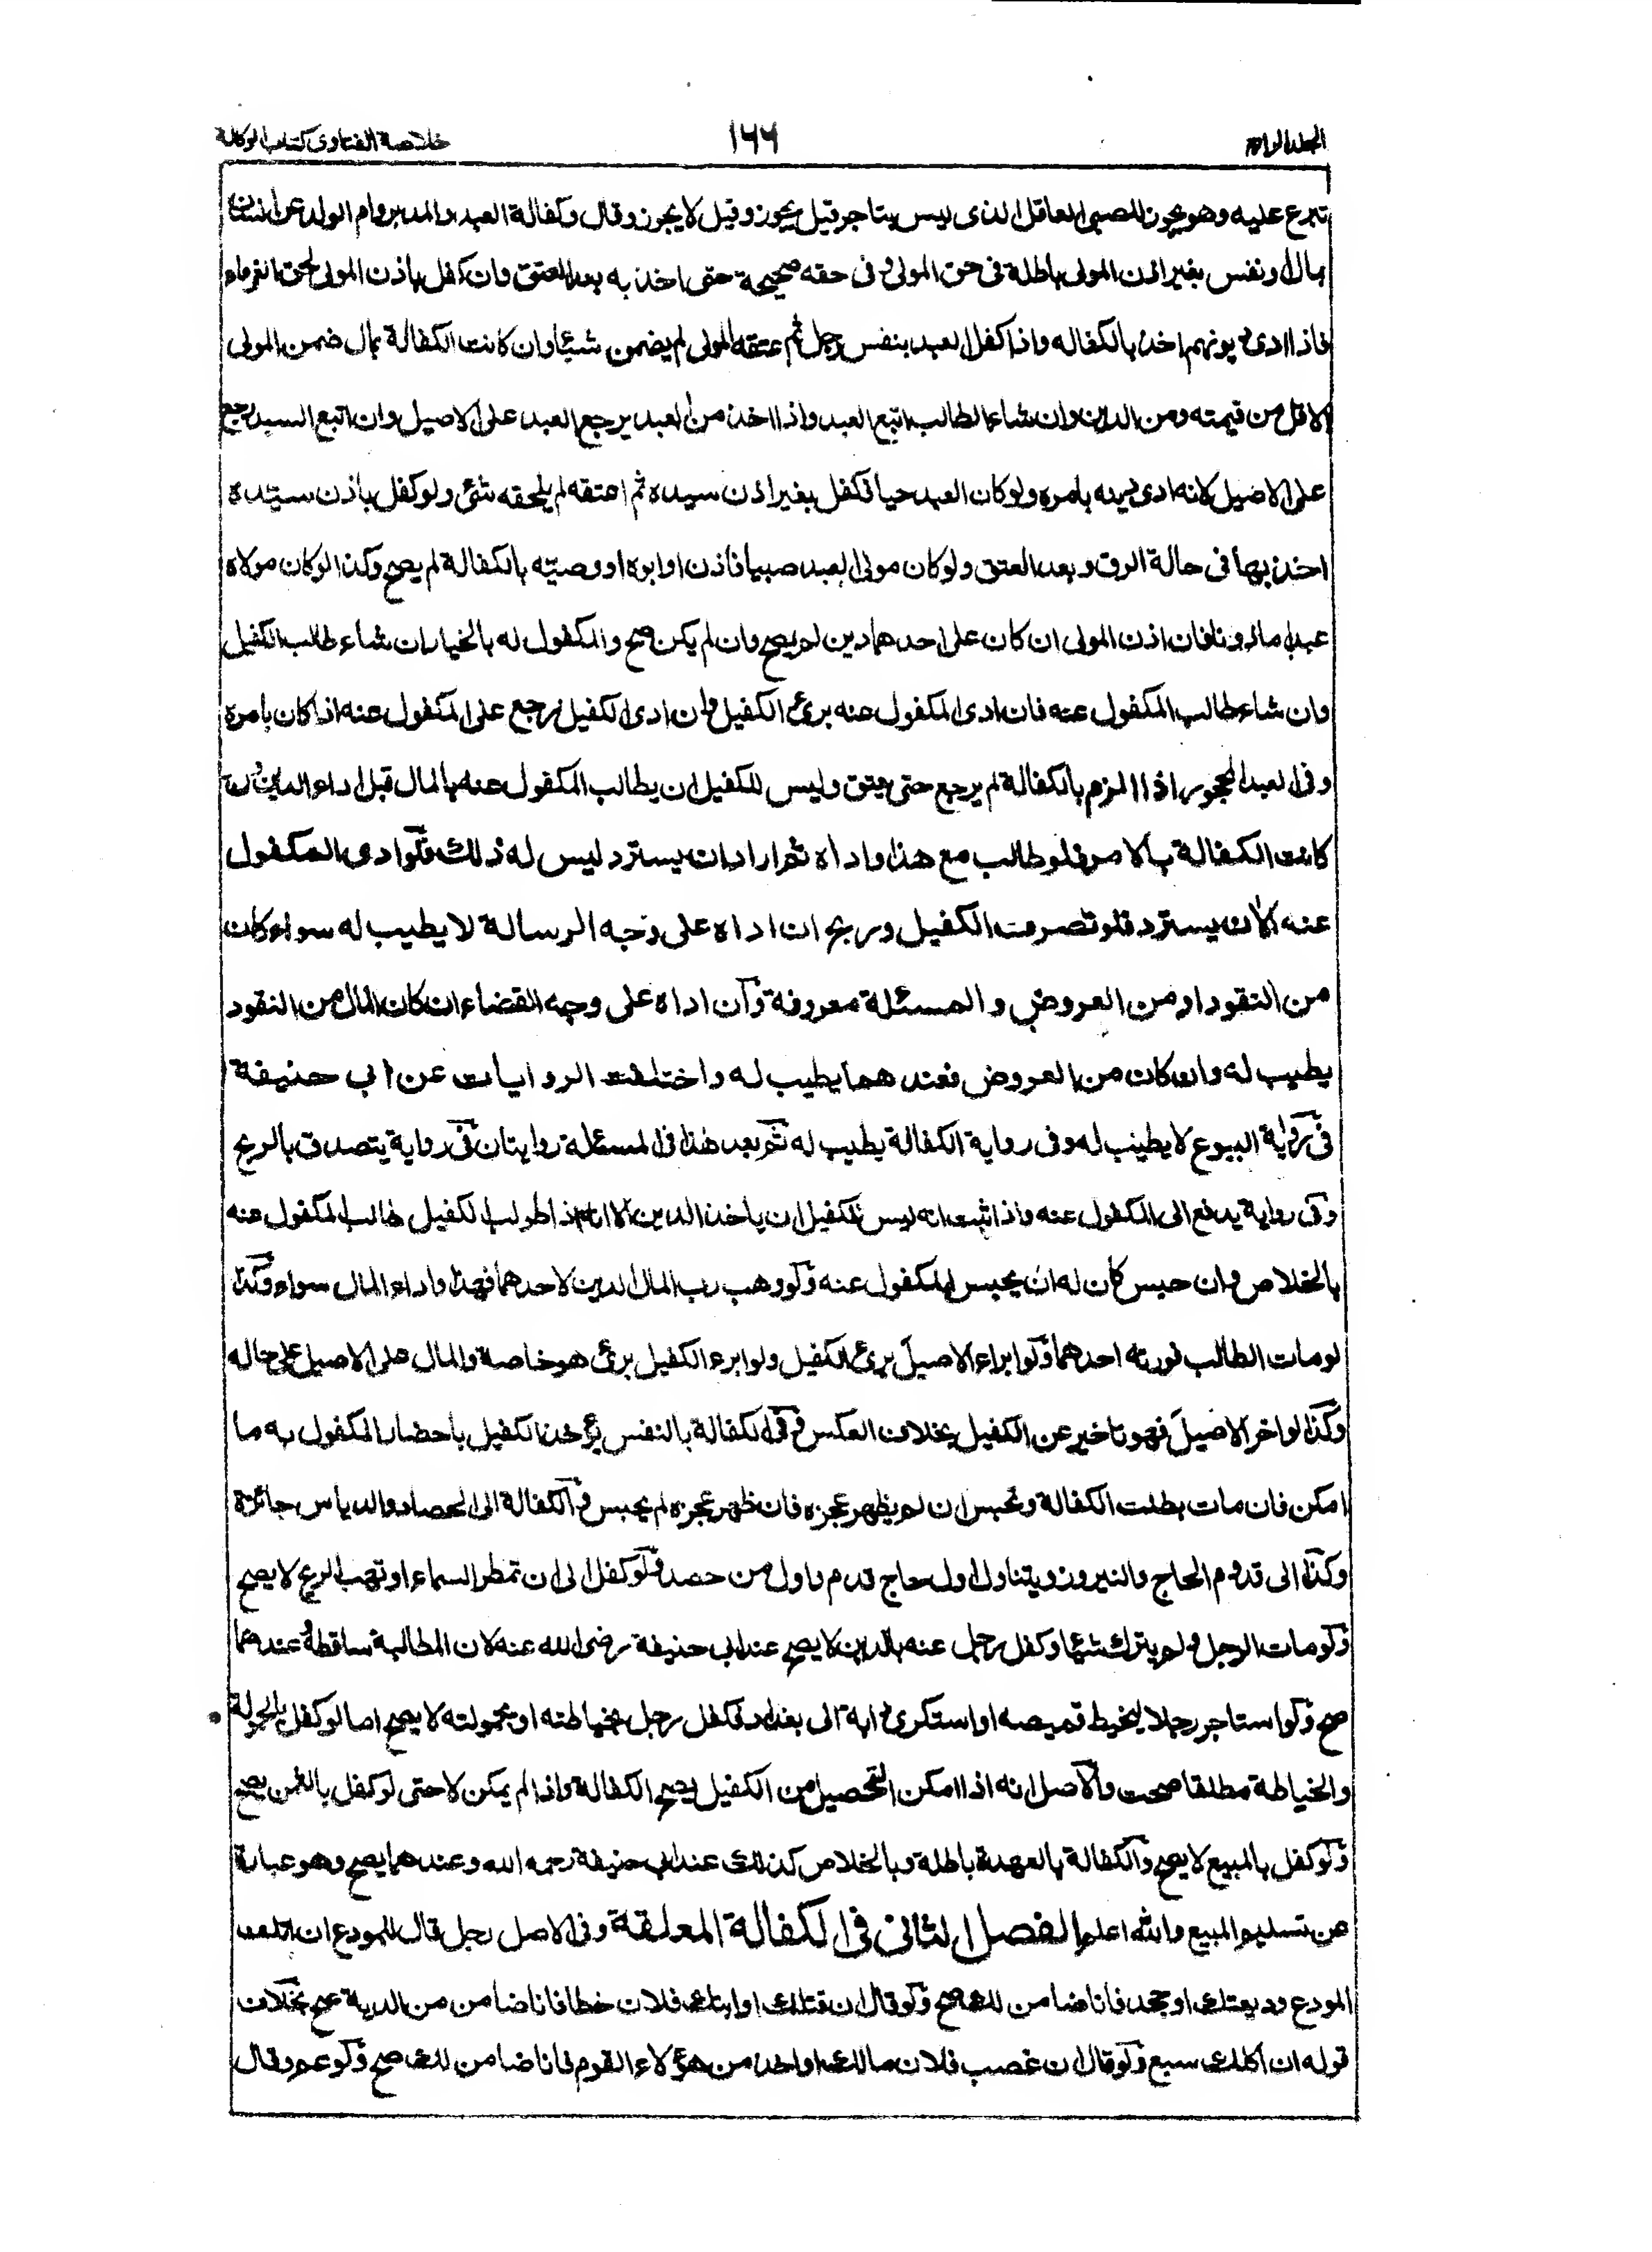 المجلد الرابع
١٦٦
خلاصة الفتاوى كتاب الوكالة
تبرع عليه وهو يجوز للصبي العاقل الذى ليس بتاجر قيل يجوز وقيل لا يجوز وقال وكفالة العبد والمدبر وام الولد عن انسان
بمال او نفس بغير اذن المولى باطلة فى حق المولى وفى حقه صحيحة حتى اخذ به بعد العتق وان كفل باذن المولى لحق الغرماء
فاذا ادى ديونهم اخذ بالكفاله واذا كفل العبد بنفس رجل ثم عتقه المولى لم يضمن شيئا وان كانت الكفالة بمال ضمن المولى
الاقل من قيمته ومن الدين وان شاء الطالب اتبع العبد واذا اخذ من العبد يرجع العبد على الاصيل وان اتبع السيد رجع
على الاصيل لانه ادى دينه بامره ولو كان العبد حيا فكفل بغير اذن سيده ثم اعتقه لم يلحقه شئ ولو كفل باذن سيده
اخذ بها فى حالة الرق وبعد العتق ولو كان مولى العبد صبيا فاذن ابوه او وصيه بالكفالة لم يصح وكذا لو كان مولاه
عبدا ماذونا فان اذن المولى ان كان على احدهما دين لم يصح وان لم يكن صح والمكفول له بالخيار ان شاء طالب الكفيل
وان شاء طالب المكفول عنه فان ادى المكفول عنه برئ الكفيل وان ادى الكفيل رجع على المكفول عنه اذا كان بامره
وفى العبد المحجور اذا التزم بالكفالة لم يرجع حتى يعتق وليس للكفيل ان يطالب المكفول عنه بالمال قبل اداء الدين وان
كانت الكفالة بالامر فلو طالب مع هذا واداه ثم اراد ان يسترد ليس له ذلك ولو ادى المكفول
عنه الان يسترد فلو تصرف الكفيل وربح ان اداه على وجه الرسالة لا يطيب له سواء كان
من النقود او من العروض والمسئلة معروفة وان اداه على وجه القضاء ان كان المال من النقود
يطيب له وان كان من العروض فعندهما يطيب له واختلفت الروايات عن ابى حنيفة
فى رواية البيوع لا يطيب له وفى رواية الكفالة يطيب له ثم بعد هذا فى المسئلة روايتان فى رواية يتصدق بالربح
وفى رواية يدفع الى المكفول عنه واذا ثبت انه ليس للكفيل ان ياخذ الدين الا انه اذا طولب الكفيل طالب المكفول عنه
بالخلاص وان حبس كان له ان يحبس المكفول عنه ولو وهب رب المال الدين لاحدهما فهذا واداء المال سواء وكذا
لو مات الطالب فورثه احدهما ولو ابراء الاصيل برئ الكفيل ولو ابرء الكفيل برئ هو خاصة والمال على الاصيل على حاله
وكذا لو اخر الاصيل فهو تاخير عن الكفيل بخلاف العكس وفى الكفالة بالنفس يؤخذ الكفيل باحضار المكفول به ما
امكن فان مات بطلت الكفالة ويحبس ان لم يظهر عجزه فان ظهر عجزه لم يحبس والكفالة الى الحصاد والدياس جائزة
وكذا الى قدوم الحاج والنيروز ويتناول اول حاج قدم واول من حصد ولو كفل الى ان تمطر السماء او تهب الريح لا يصح
ولو مات الرجل ولم يترك شيئا وكفل رجل عنه بالدين لا يصح عند ابى حنيفة رضى الله عنه لان المطالبة ساقطة وعندهما
صح ولو استاجر رجلا ليخيط قميصه او استكرى دابة الى بغداد فكفل رجل بخياطته او بحمولته لا يصح اما لو كفل بالحمولة
والخياطة مطلقا صحت والاصل انه اذا امكن التحصيل من الكفيل يصح الكفالة واذا لم يمكن لا حتى لو كفل بالثمن يصح
ولو كفل بالمبيع لا يصح والكفالة بالعهدة باطلة وبالخلاص كذلك عند ابى حنيفة رحمه الله وعندهما يصح وهو عبارة
عن تسليم المبيع والله اعلم الفصل الثانى فى الكفالة المعلقة وفى الاصل رجل قال للمودع ان اتلف
المودع وديعتك او جحد فانا ضامن لك صح ولو قال ان قتلك او ابنك فلان خطا فانا ضامن من الدية صح بخلاف
قوله ان اكلك سبع ولو قال ان غصب فلان مالك او احد من هؤلاء القوم فانا ضامن لك صح ولو عم وقال